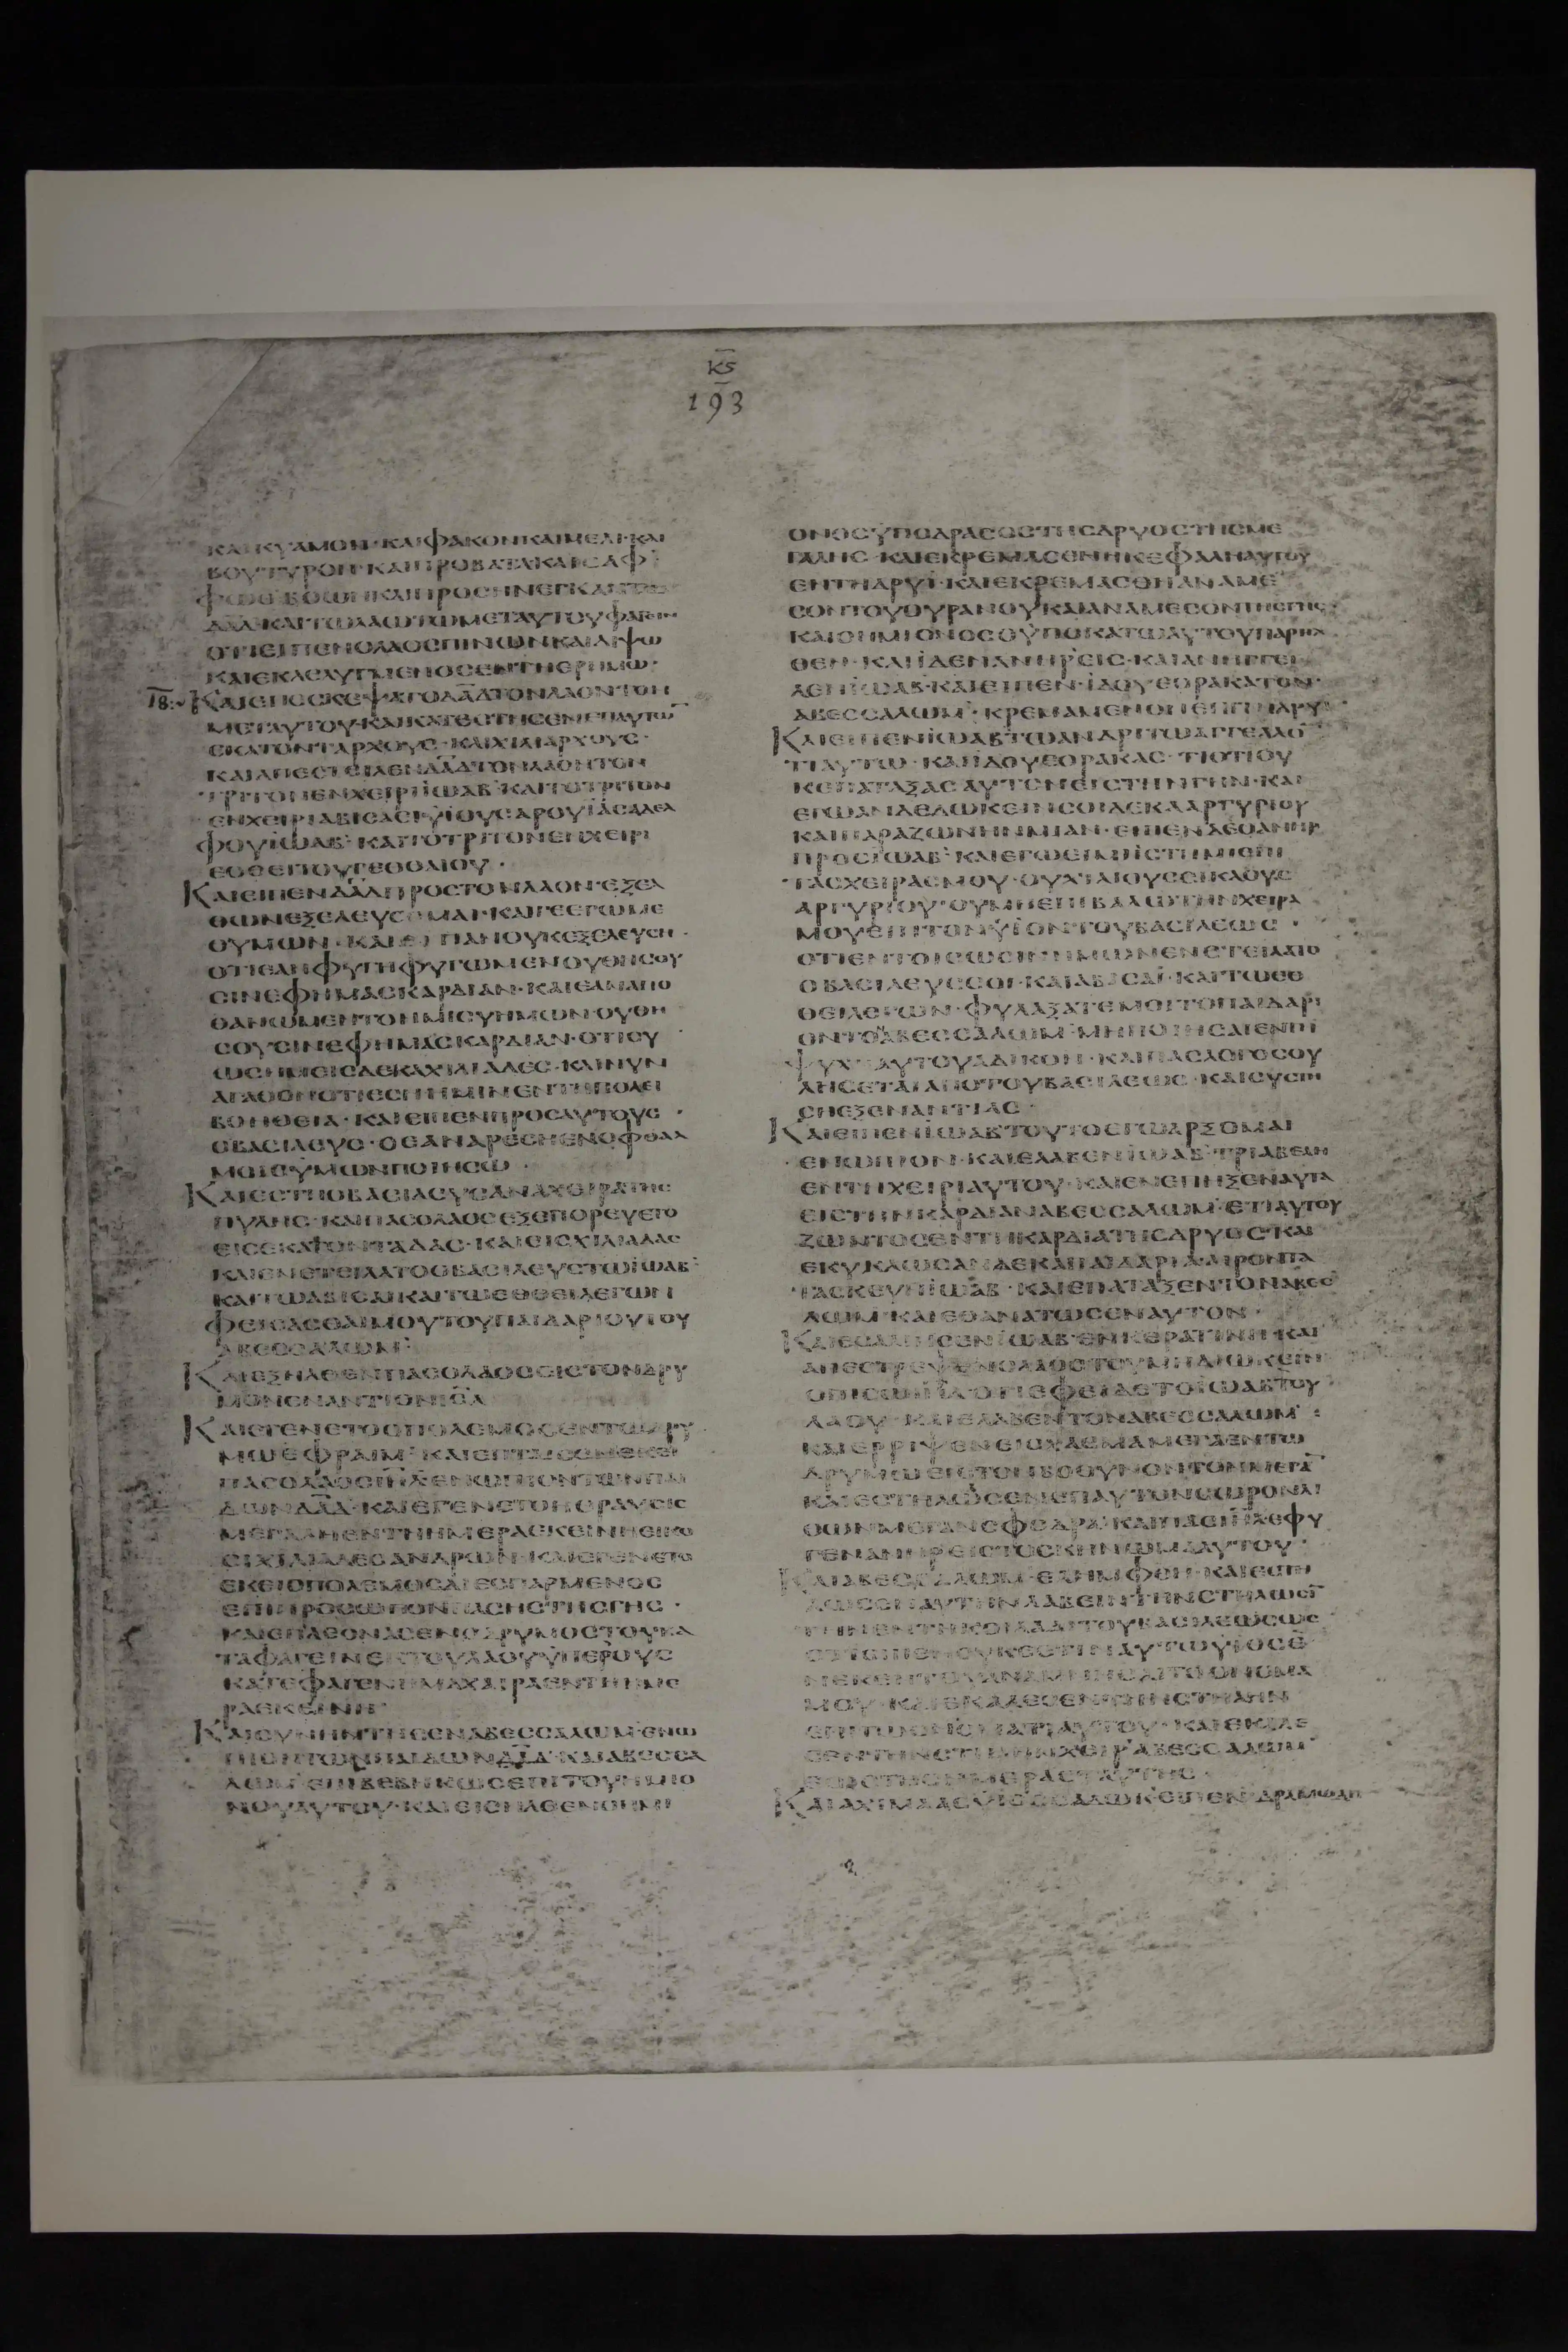 ΚS
193
ΚΑΙΚΥΑΜΟΝ·ΚΑΙΦΑΚΟΝΚΑΙΜΕΛΙ·ΚΑΙ
ΒΟΥΤΥΡΟΝ·ΚΑΙΠΡΟΒΑΤΑΚΑΙΣΑΦ
ΦΩΘΒΟΩΝΚΑΙΠΡΟΣΗΝΕΓΚΑΝΤΩ
ΔΑΔ·ΚΑΙΤΩΛΑΩΤΩΜΕΤΑΥΤΟΥΦΑΓΕΙΝ
ΟΤΙΕΙΠΕΝΟΛΑΟΣΠΙΝΩΝΚΑΙΔΙΨΩ
ΚΑΙΕΚΛΕΛΥΜΕΝΟΣΕΝΤΗΕΡΗΜΩ·
18: ΚΑΙΕΠΕΣΚΕΨΑΤΟΔΑΔΤΟΝΛΑΟΝΤΟΝ
ΜΕΤΑΥΤΟΥ·ΚΑΙΚΑΤΕΣΤΗΣΕΝΕΠΑΥΤΩ
ΕΚΑΤΟΝΤΑΡΧΟΥΣ·ΚΑΙΧΙΛΙΑΡΧΟΥΣ·
ΚΑΙΑΠΕΣΤΕΙΛΕΝΔΑΔΤΟΝΛΑΟΝΤΟΝ
ΤΡΙΤΟΝΕΝΧΕΙΡΙΪΩΑΒ·ΚΑΙΤΟΤΡΙΤΟΝ
ΕΝΧΕΙΡΙΑΒΙΣΑΣΥΪΟΥΣΑΡΟΥΪΑΣΑΔΕΛ
ΦΟΥΪΩΑΒ·ΚΑΙΤΟΤΡΙΤΟΝΕΝΧΕΙΡΙ
ΕΘΘΕΙΤΟΥΓΕΘΘΑΙΟΥ·
ΚΑΙΕΙΠΕΝΔΑΔΠΡΟΣΤΟΝΛΑΟΝ·ΕΞΕΛ
ΘΩΝΕΞΕΛΕΥΣΟΜΑΙ·ΚΑΙΓΕΕΓΩΜΕ
ΘΥΜΩΝ·ΚΑΙΕΙΠΑΝΟΥΚΕΞΕΛΕΥΣΗ·
ΟΤΙΕΑΝΦΥΓΗΦΥΓΩΜΕΝΟΥΘΗΣΟΥ
ΣΙΝΕΦΗΜΑΣΚΑΡΔΙΑΝ·ΚΑΙΕΑΝΑΠΟ
ΘΑΝΩΜΕΝΤΟΗΜΙΣΥΗΜΩΝ·ΟΥΘΗ
ΣΟΥΣΙΝΕΦΗΜΑΣΚΑΡΔΙΑΝ·ΟΤΙΣΥ
ΩΣΗΜΕΙΣΔΕΚΑΧΙΛΙΑΔΕΣ·ΚΑΙΝΥΝ
ΑΓΑΘΟΝΟΤΙΕΣΗΗΜΙΝΕΝΤΗΠΟΛΕΙ
ΒΟΗΘΕΙΑ·ΚΑΙΕΙΠΕΝΠΡΟΣΑΥΤΟΥΣ·
ΟΒΑΣΙΛΕΥΣ·ΟΕΑΝΑΡΕΣΗΕΝΟΦΘΑΛ
ΜΟΙΣΥΜΩΝΠΟΙΗΣΩ·
ΚΑΙΕΣΤΗΟΒΑΣΙΛΕΥΣΑΝΑΧΕΙΡΑΤΗΣ
ΠΥΛΗΣ·ΚΑΙΠΑΣΟΛΑΟΣΕΞΕΠΟΡΕΥΕΤΟ
ΕΙΣΕΚΑΤΟΝΤΑΔΑΣ·ΚΑΙΕΙΣΧΙΛΙΑΔΑΣ
ΚΑΙΕΝΕΤΕΙΛΑΤΟΟΒΑΣΙΛΕΥΣΤΩΪΩΑΒ
ΚΑΙΤΩΑΒΙΣΑΙΚΑΙΤΩΕΘΘΕΙΛΕΓΩΝ
ΦΕΙΣΑΣΘΑΙΜΟΥΤΟΥΠΑΙΔΑΡΙΟΥΤΟΥ
ΑΒΕΣΣΑΛΩΜ·
ΚΑΙΕΞΗΛΘΕΝΠΑΣΟΛΑΟΣΕΙΣΤΟΝΔΡΥ
ΜΟΝΕΝΑΝΤΙΟΝΙΗΛ
ΚΑΙΕΓΕΝΕΤΟΟΠΟΛΕΜΟΣΕΝΤΩΔΡΥ
ΜΩΕΦΡΑΙΜ·ΚΑΙΕΠΤΑΙΣΕΝΕΚΕΙ
ΠΑΣΟΛΑΟΣΙΗΛΕΝΩΠΙΟΝΤΩΝΠΑΙ
ΔΩΝΔΑΔ·ΚΑΙΕΓΕΝΕΤΟΗΘΡΑΥΣΙΣ
ΜΕΓΑΛΗΕΝΤΗΗΜΕΡΑΕΚΕΙΝΗΕΙΚΟ
ΣΙΧΙΛΙΑΔΕΣΑΝΔΡΩΝ·ΚΑΙΕΓΕΝΕΤΟ
ΕΚΕΙΟΠΟΛΕΜΟΣΔΙΕΣΠΑΡΜΕΝΟΣ
ΕΠΙΠΡΟΣΩΠΟΝΠΑΣΗΣΤΗΣΓΗΣ·
ΚΑΙΕΠΛΕΟΝΑΣΕΝΟΔΡΥΜΟΣΤΟΥΚΑ
ΤΑΦΑΓΕΙΝΕΚΤΟΥΛΑΟΥΥΠΕΡΟΥΣ
ΚΑΤΕΦΑΓΕΝΗΜΑΧΑΙΡΑΕΝΤΗΗΜΕ
ΡΑΕΚΕΙΝΗ·
ΚΑΙΣΥΝΗΝΤΗΣΕΝΑΒΕΣΣΑΛΩΜ·ΕΝΩ
ΠΙΟΝΤΩΝΠΑΙΔΩΝΔΑΔ·ΚΑΙΑΒΕΣΣΑ
ΛΩΜ·ΕΠΙΒΕΒΗΚΩΣΕΠΙΤΟΥΗΜΙΟ
ΝΟΥΑΥΤΟΥ·ΚΑΙΕΙΣΗΛΘΕΝΟΗΜΙ
ΟΝΟΣΫΠΟΔΡΑΣΟΣΤΗΣΔΡΥΟΣΤΗΣΜΕ
ΓΑΛΗΣ·ΚΑΙΕΚΡΕΜΑΣΘΗΗΚΕΦΑΛΗΑΥΤΟΥ
ΕΝΤΗΔΡΥΪ·ΚΑΙΕΚΡΕΜΑΣΘΗΑΝΑΜΕ
ΣΟΝΤΟΥΟΥΡΑΝΟΥΚΑΙΑΝΑΜΕΣΟΝΤΗΣΓΗΣ·
ΚΑΙΟΗΜΙΟΝΟΣΟΫΠΟΚΑΤΩΑΥΤΟΥΠΑΡΗΛ
ΘΕΝ·ΚΑΙΪΔΕΝΑΝΗΡΕΙΣ·ΚΑΙΑΝΗΓΓΕΙ
ΛΕΝΪΩΑΒ·ΚΑΙΕΙΠΕΝ·ΪΔΟΥΕΟΡΑΚΑΤΟΝ·
ΑΒΕΣΣΑΛΩΜ·ΚΡΕΜΑΜΕΝΟΝΕΝΤΗΔΡΥ
ΚΑΙΕΙΠΕΝΪΩΑΒΤΩΑΝΔΡΙΤΩΑΓΓΕΛΛΟ
ΤΙΑΥΤΩ·ΚΑΙΪΔΟΥΕΟΡΑΚΑΣ·ΤΙΟΤΙΟΥ
ΚΕΠΑΤΑΞΑΣΑΥΤΟΝΕΙΣΤΗΝΓΗΝ·ΚΑΙ
ΕΓΩΑΝΔΕΔΩΚΕΙΝΣΟΙΔΕΚΑΑΡΓΥΡΙΟΥ
ΚΑΙΠΑΡΑΖΩΝΗΝΜΙΑΝ·ΕΙΠΕΝΔΕΟΑΝΗΡ
ΠΡΟΣΪΩΑΒ·ΚΑΙΕΓΩΕΙΜΙΪΣΤΗΜΙΕΠΙ
ΤΑΣΧΕΙΡΑΣΜΟΥ·ΟΥΧΙΛΙΟΥΣΣΙΚΛΟΥΣ
ΑΡΓΥΡΙΟΥ·ΟΥΜΗΕΠΙΒΑΛΩΤΗΝΧΕΙΡΑ
ΜΟΥΕΠΙΤΟΝΫΪΟΝΤΟΥΒΑΣΙΛΕΩΣ·
ΟΤΙΕΝΤΟΙΣΩΣΙΝΗΜΩΝΕΝΕΤΕΙΛΑΤΟ
ΟΒΑΣΙΛΕΥΣΣΟΙ·ΚΑΙΑΒΙΣΑΪ·ΚΑΙΤΩΕΘ
ΘΕΙΛΕΓΩΝ·ΦΥΛΑΞΑΤΕΜΟΙΤΟΠΑΙΔΑΡΙ
ΟΝΤΟΑΒΕΣΣΑΛΩΜ·ΜΗΠΟΙΗΣΑΙΕΝΤΗ
ΨΥΧΗΑΥΤΟΥΑΔΙΚΟΝ·ΚΑΙΠΑΣΛΟΓΟΣΟΥ
ΛΗΣΕΤΑΙΑΠΟΤΟΥΒΑΣΙΛΕΩΣ·ΚΑΙΣΥΣΤΗ
ΣΗΕΞΕΝΑΝΤΙΑΣ·
ΚΑΙΕΙΠΕΝΪΩΑΒΤΟΥΤΟΕΓΩΑΡΞΟΜΑΙ
ΕΝΩΠΙΟΝ·ΚΑΙΕΛΑΒΕΝΪΩΑΒ·ΤΡΙΑΒΕΛΗ
ΕΝΤΗΧΕΙΡΙΑΥΤΟΥ·ΚΑΙΕΝΕΠΗΞΕΝΑΥΤΑ
ΕΙΣΤΗΝΚΑΡΔΙΑΝΑΒΕΣΣΑΛΩΜ·ΕΤΙΑΥΤΟΥ
ΖΩΝΤΟΣΕΝΤΗΚΑΡΔΙΑΤΗΣΔΡΥΟΣ·ΚΑΙ
ΕΚΥΚΛΩΣΑΝΔΕΚΑΠΑΙΔΑΡΙΑΑΙΡΟΝΤΑ
ΤΑΣΚΕΥΗΪΩΑΒ·ΚΑΙΕΠΑΤΑΞΕΝΤΟΝΑΒΕΣ
ΛΩΜ·ΚΑΙΕΘΑΝΑΤΩΣΕΝΑΥΤΟΝ·
ΚΑΙΕΣΑΛΠΙΣΕΝΪΩΑΒ·ΕΝΚΕΡΑΤΙΝΗ·ΚΑΙ
ΑΠΕΣΤΡΕΨΕΝΟΛΑΟΣΤΟΥΜΗΔΙΩΚΕΙΝ
ΟΠΙΣΩΙΗΛ·ΟΤΙΕΦΕΙΔΕΤΟΪΩΑΒΤΟΥ
ΛΑΟΥ·ΚΑΙΕΛΑΒΕΝΤΟΝΑΒΕΣΣΑΛΩΜ·
ΚΑΙΕΡΡΙΨΕΝΕΙΣΧΑΣΜΑΜΕΓΑΕΝΤΩ
ΔΡΥΜΩΕΙΣΤΟΝΒΟΘΥΝΟΝΤΟΝΜΕΓΑ
ΚΑΙΕΣΤΗΛΩΣΕΝΕΠΑΥΤΟΝΣΩΡΟΝΛΙ
ΘΩΝΜΕΓΑΝΣΦΟΔΡΑ·ΚΑΙΠΑΣΙΗΛΕΦΥ
ΓΕΝΑΝΗΡΕΙΣΤΟΣΚΗΝΩΜΑΑΥΤΟΥ·
ΚΑΙΑΒΕΣΣΑΛΩΜ·ΕΛΗΜΦΘΗ·ΚΑΙΕΣΤΗ
ΛΩΣΕΝΑΥΤΗΝΛΑΒΕΙΝΤΗΝΣΤΗΛΩΣΙ
ΤΗΝΕΝΤΗΚΟΙΛΑΔΙΤΟΥΒΑΣΙΛΕΩΣΩΣ
ΟΤΙΕΙΠΕΝΟΥΚΕΣΤΙΝΑΥΤΩΫΪΟΣΕ
ΝΕΚΕΝΤΟΥΑΝΑΜΝΗΣΑΙΤΟΟΝΟΜΑ
ΜΟΥ·ΚΑΙΕΚΑΛΕΣΕΝΤΗΝΣΤΗΛΗΝ
ΕΠΙΤΩΟΝΟΜΑΤΙΑΥΤΟΥ·ΚΑΙΕΚΑΛΕ
ΣΕΝΤΗΝΣΤΗΛΗΝΧΕΙΡΑΒΕΣΣΑΛΩΜ
ΕΩΣΤΗΣΗΜΕΡΑΣΤΑΥΤΗΣ·
ΚΑΙΑΧΙΜΑΑΣΫΪΟΣΣΑΔΩΚΕΙΠΕΝ·ΔΡΑΜΩΔΗ